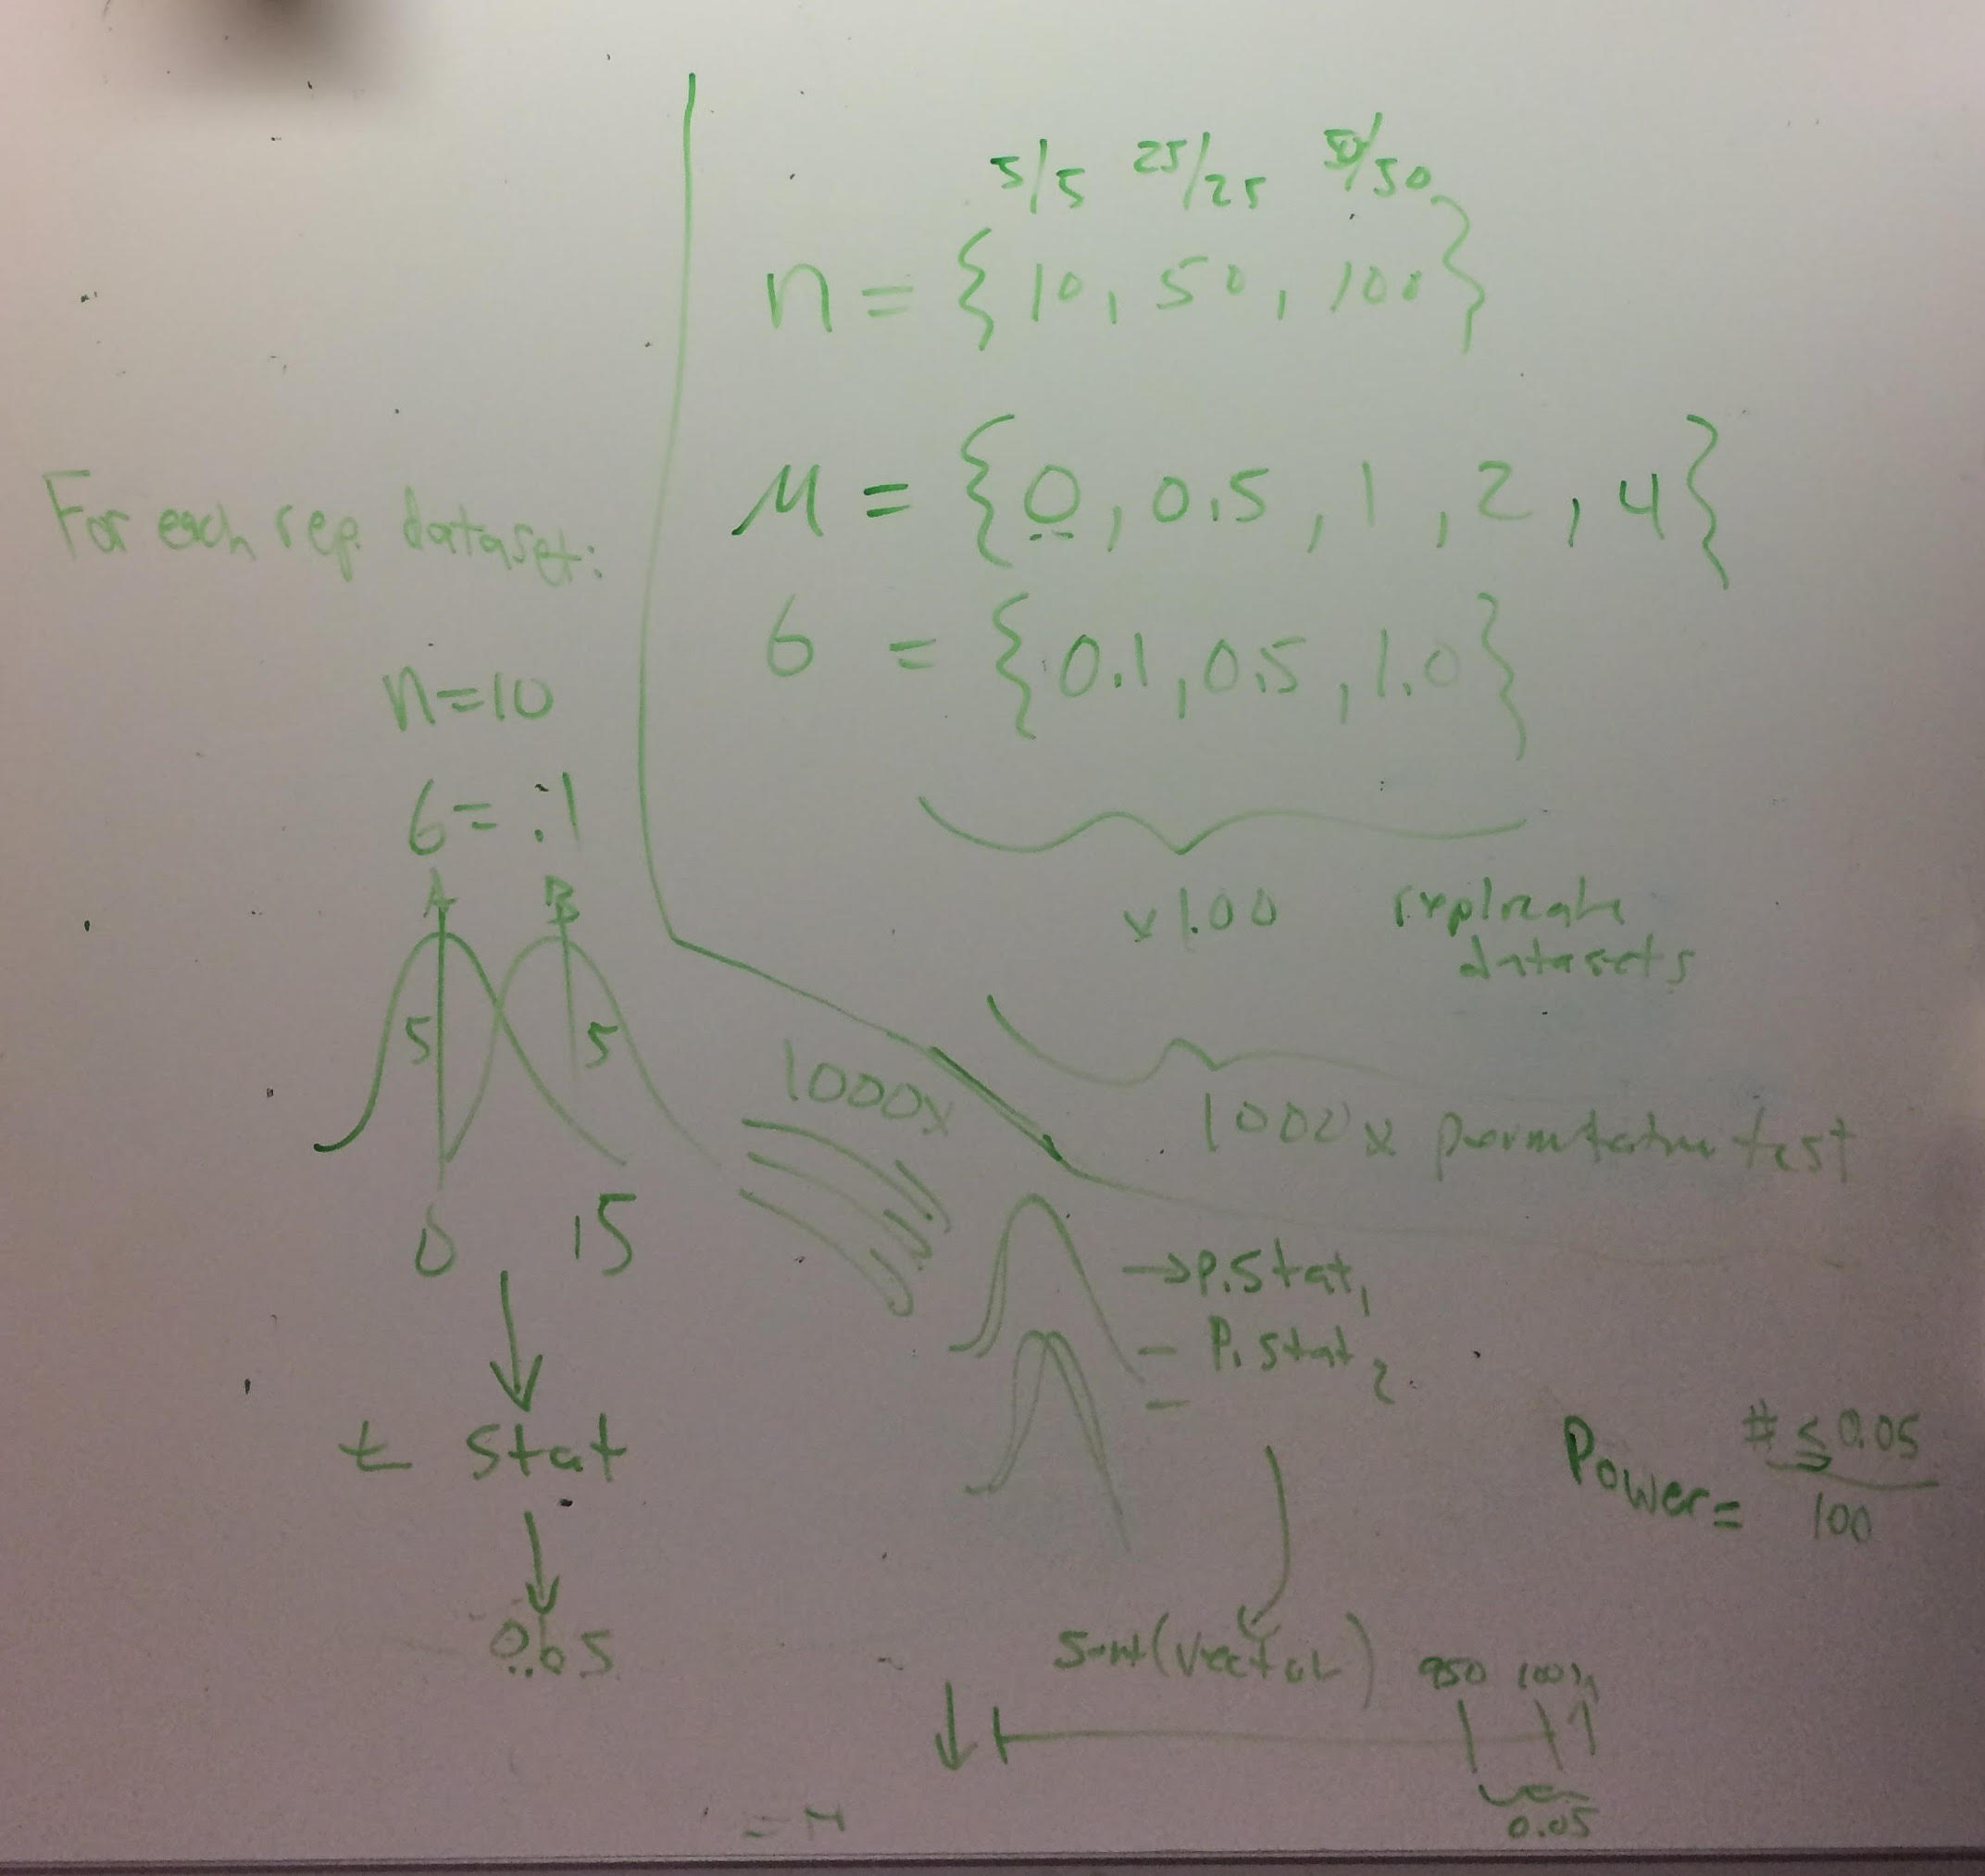 5/5 25/25 50/50
n = { 10, 50, 100 }
μ = { 0, 0.5, 1, 2, 4 }
σ = { 0.1, 0.5, 1.0 }
x 100 replicate
datasets
1000x permutation test
For each rep. dataset:
n=10
σ= .1
A B
5 5
0 .5
1000x
t stat
0.05
→ P.Stat₁
– P.Stat₂
–
Sort(vector) 950 1000
0.05
Power = # ≤ 0.05 / 100